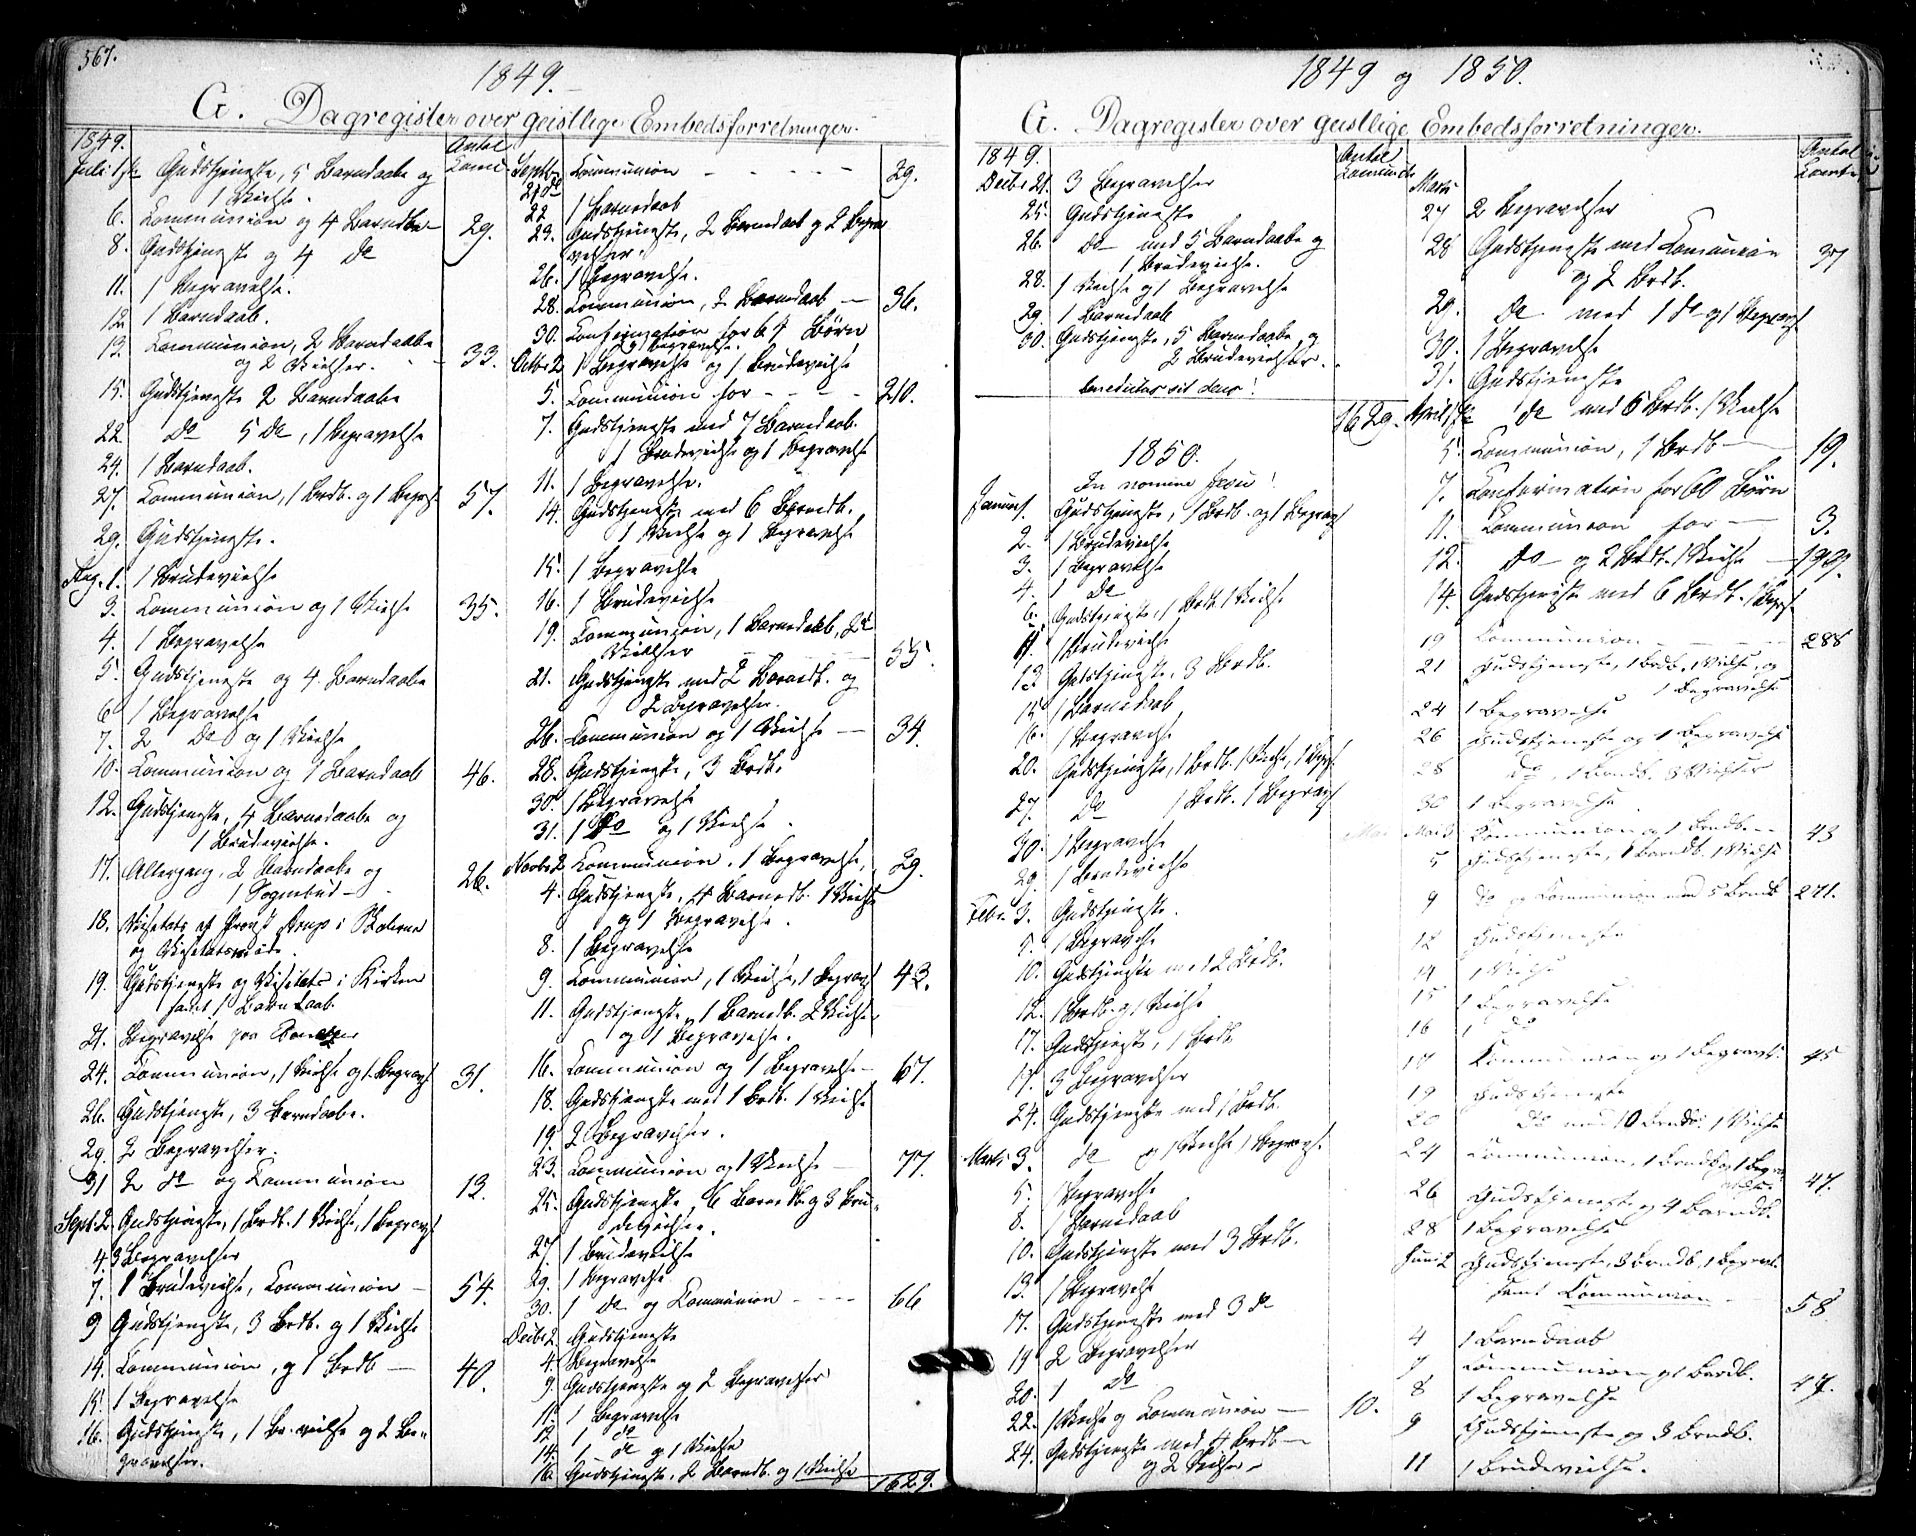 567.
1849.
G. Dagregister over geistlige Embedsforretninger.
1849.
Antal
Comu.
Juli 1ste Gudstjeneste, 5 Barndaabe og
1 Vielse.
6. Communion og 4 Barndbe 29.
8. Gudstjeneste og 4 Do
11. 1 Begravelse.
12. 1 Barndaab.
13. Communion, 2 Barndaabe
og 2 Vielser. 33.
15. Gudstjeneste 2 Barndaabe
22. Do 5 Do, 1 Begravelse
24. 1 Barndaab.
27. Communion, 1 Brdb. og 1 Begravs 57.
29. Gudstjeneste.
Aug. 1. 1 Brudevielse
3. Communion og 1 Vielse 35.
4. 1 Begravelse
5. Gudstjeneste og 4 Barndaabe
6 1 Begravelse
7. 2 Do og 1 Vielse
10. Communion og 1 Barndaab 46.
12. Gudstjeneste, 4 Barnedaabe og
1 Brudevielse.
17. Altergang, 2 Barndaabe og
1 Sognebud 26.
18. Visitats af Provst Arup i Skolerne
og Visitatsmöde.
19. Gudstjeneste og Visitats i Kirken
samt 1 Barndaab.
21. Begravelse paa
24. Communion, 1 Vielse og 1 Begravs 31.
26. Gudstjeneste, 3 Barndaabe.
29. 2 Begravelser.
31 2 do og Communion 13.
Sept. 2. Gudstjeneste, 1 Brdb. 1 Vielse, 1 Begravs
4. 3 Begravelser
7. 1 Brudevielse, Communion 54.
9 Gudstjeneste, 3 Brdb. og 1 Vielse
14. Communion, og 1 Brdb 40.
15. 1 Begravelse
16. Gudstjeneste, 1 Br.vielse og 2 Be-
gravelser.
Septbr.
21de Communion 29.
22 1 Barnedaab
23. Gudstjeneste, 2 Barndaab og 2 Begra
velser.
26. 1 Begravelse.
28. Communion, 2 Barndaab 36.
30. Confirmation for 64 Börn
og 1 Begravelse.
Octbr 2 1 Begravelse og 1 Brudevielse
5. Communion for 210.
7. Gudstjeneste med 7 Barndaab.
1 Brudevielse og 1 Begravelse
11. 1 Begravelse.
14. Gudstjeneste med 6 Barndb.
1 Vielse og 1 Begravelse
15. 1 Begravelse
16. 1 Brudevielse
19. Communion, 1 Barnedaab, 2de
Vielser 55.
21. Gudstjeneste med 2 Barnedb. og
2 Begravelser.
26. Communion og 1 Vielse 34.
28. Gudstjeneste, 3 Brdb.
30. 1 Begravelse
31. 1 Do og 1 Vielse.
Novbr 2 Communion, 1 Begravelse, 29.
4. Gudstjeneste, 4 Barnedb. 1 Vielse
og 1 Begravelse.
8. 1 Begravelse
9. Communion, 1 Vielse, 1 Begravs 43.
11. Gudstjeneste, 1 Barnedb. 2 Vielse,
og 1 Begravelse.
16. Communion og 1 Begravelse 67.
18. Gudstjeneste med 1 Brdb. 1 Vielse
19. 2 Begravelser.
23. Communion og 1 Vielse 77.
25. Gudstjeneste, 6 Barndb. og 3 Bru-
devielser.
27. 1 Brudevielse
29. 1 Begravelse
30. 1 do og Communion 66
Decbr 2. Gudstjeneste
4. Begravelse
9. Gudstjeneste og 2 Begravelser
11. 1 Begravelse
12 1 do
14. 1 do og 1 Vielse
16. Gudstjeneste, 2 Barndb. og 1 Vielse
1629.
1849 og 1850.
G. Dagregister over geistlige Embedsforretninger.
1849.
Antal
Decbr 21. 3 Begravelser
25. Gudstjeneste
26. Do med 5 Barndaabe og
1 Brudevielse.
28. 1 Vielse og 1 Begravelse
29. 1 Barnedaab
30. Gudstjeneste, 5 Barndaabe, og
2 Brudevielser.
benedictus sit deus!
1629.
1850.
In nomine Jesu!
Januar 1. Gudstjeneste, 1 Brdb. og 1 Begravs
2. 1 Brudevielse
3. 1 Begravelse
4. 1 Do
6. Gudstjeneste, 1 Brdb. 1 Vielse
11. 1 Brudevielse
13 Gudstjeneste, 3 Brdb.
15. 1 Barnedaab
16. 1 Begravelse
20. Gudstjeneste, 1 Brdb. 1 Vielse, 1 Begrs
27. Do 1 Brdb. 1 Begravs
1 Begravelse
29. 1 Brudevielse
Febr. 3. Gudstjeneste.
5. 1 Begravelse
10. Gudstjeneste med 2 Brdb.
12. 1 Brdb. og 1 Vielse
17. Gudstjeneste, 1 Brdb
17. 3 Begravelser
24. Gudstjeneste med 1 Brdb.
Marts 3. do og 1 Vielse 1 Begravs.
5. 1 Begravelse
8. 1 Barnedaab
10. Gudstjeneste med 3 Brdb.
13. 1 Begravelse
17. Gudstjeneste med 3 do
19 2 Begravelser
20. 1 Do
22. 1 Vielse og Communion 10.
24. Gudstjeneste med 4 Brdb
og 2 Vielser
Antal
Marts
27 2 Begravelser
28 Gudstjeneste med Comunion 37
og 2 Brdb.
29. Do med 1 Do og 1 Begravs
30. 1 Begravelse
31. Gudstjeneste
April 1ste Do med 6 Brdb. 1 Vielse
5. Communion, 1 Brdb 19.
7. Confirmation for 60 Börn
11. Communion for 3.
12. Do og 2 Brdb. 1 Vielse 199.
14. Gudstjeneste med 6 Brdb. 1 Begrs
19 Communion 288
21 Gudstjeneste, 1 Brdb, 1 Vielse, og
1 Begravelse
24 1 Begravelse
26 Gudstjeneste og 1 Begravelse
28 Do, 1 Brndb. 3 Vielser
30 1 Begravelse
Mai Mai 3 Communion og 1 Brndb. 43
5 Gudstjeneste, 1 Barndb. 1 Vielse
9 do og Communion med 5 Brndb 271.
12 Gudstjeneste
14 1 Vielse
15 1 Begravelse
16 1 do
17 Kommunion og 1 Begravls. 45
19 Gudstjeneste
20 do med 10 Brndb. 1 Vielse
24 Communion, 1 Brndb og 1 Begra-
velse. 47.
26 Gudstjeneste og 4 Barndb.
28 1 Begravelse
Juni 2 Gudstjeneste, 3 Brndb, 1 Begravls.
samt Communion 58.
4 1 Barndaab
7 Communion og 1 Barndb. 47.
8 1 Begravelse
9 Gudstjeneste og 3 Brndb.
11 1 Brudevielse.